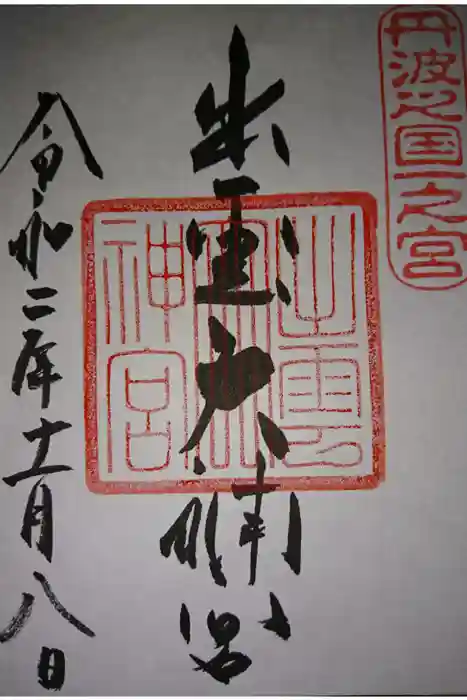 丹波之国一之宮
出雲大神宮
出雲大神宮
令和二年十一月八日